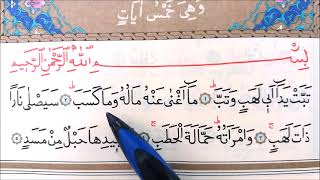 وَهِيَ خَمْسُ آيَاتٍ
بِسْمِ اللّٰهِ الرَّحْمٰنِ الرَّحِيمِ
تَبَّتْ يَدَٓا اَب۪ي لَهَبٍ وَتَبَّ ﴿١﴾ مَٓا اَغْنٰى عَنْهُ مَالُهُ وَمَا كَسَبَ ﴿٢﴾ سَيَصْلٰى نَارًا
ذَاتَ لَهَبٍ ﴿٣﴾ وَامْرَاَتُهُ حَمَّالَةَ الْحَطَبِ ﴿٤﴾ جِيدِهَا حَبْلٌ مِنْ مَسَدٍ ﴿٥﴾